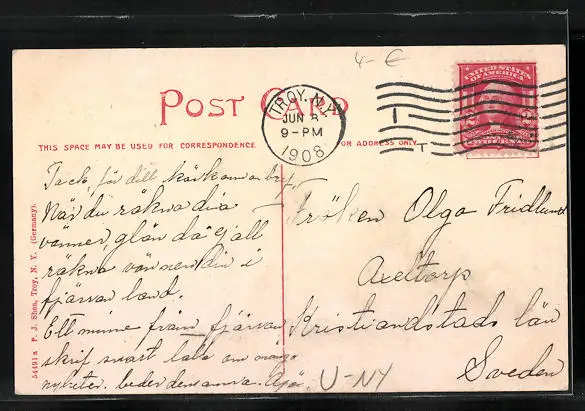 4- €
POST CARD
TROY, N.Y.
JUN 8
9-PM
1908
1
T
UNITED STATES
OF AMERICA
2
THIS SPACE MAY BE USED FOR CORRESPONDENCE
FOR ADDRESS ONLY
Tack för ditt kärkomna bref.
När du räkna dina
vänner, glöm då ej att
räkna vännen din i
fjärran land.
Ett minne från fjärran
skrif snart tala om många
nyheter. beder densamma.
Fröken Olga Fridlund
Axeltorp
Kristianstads län
Sweden
U-NY
54491 a P. J. Shea, Troy, N. Y. (Germany).